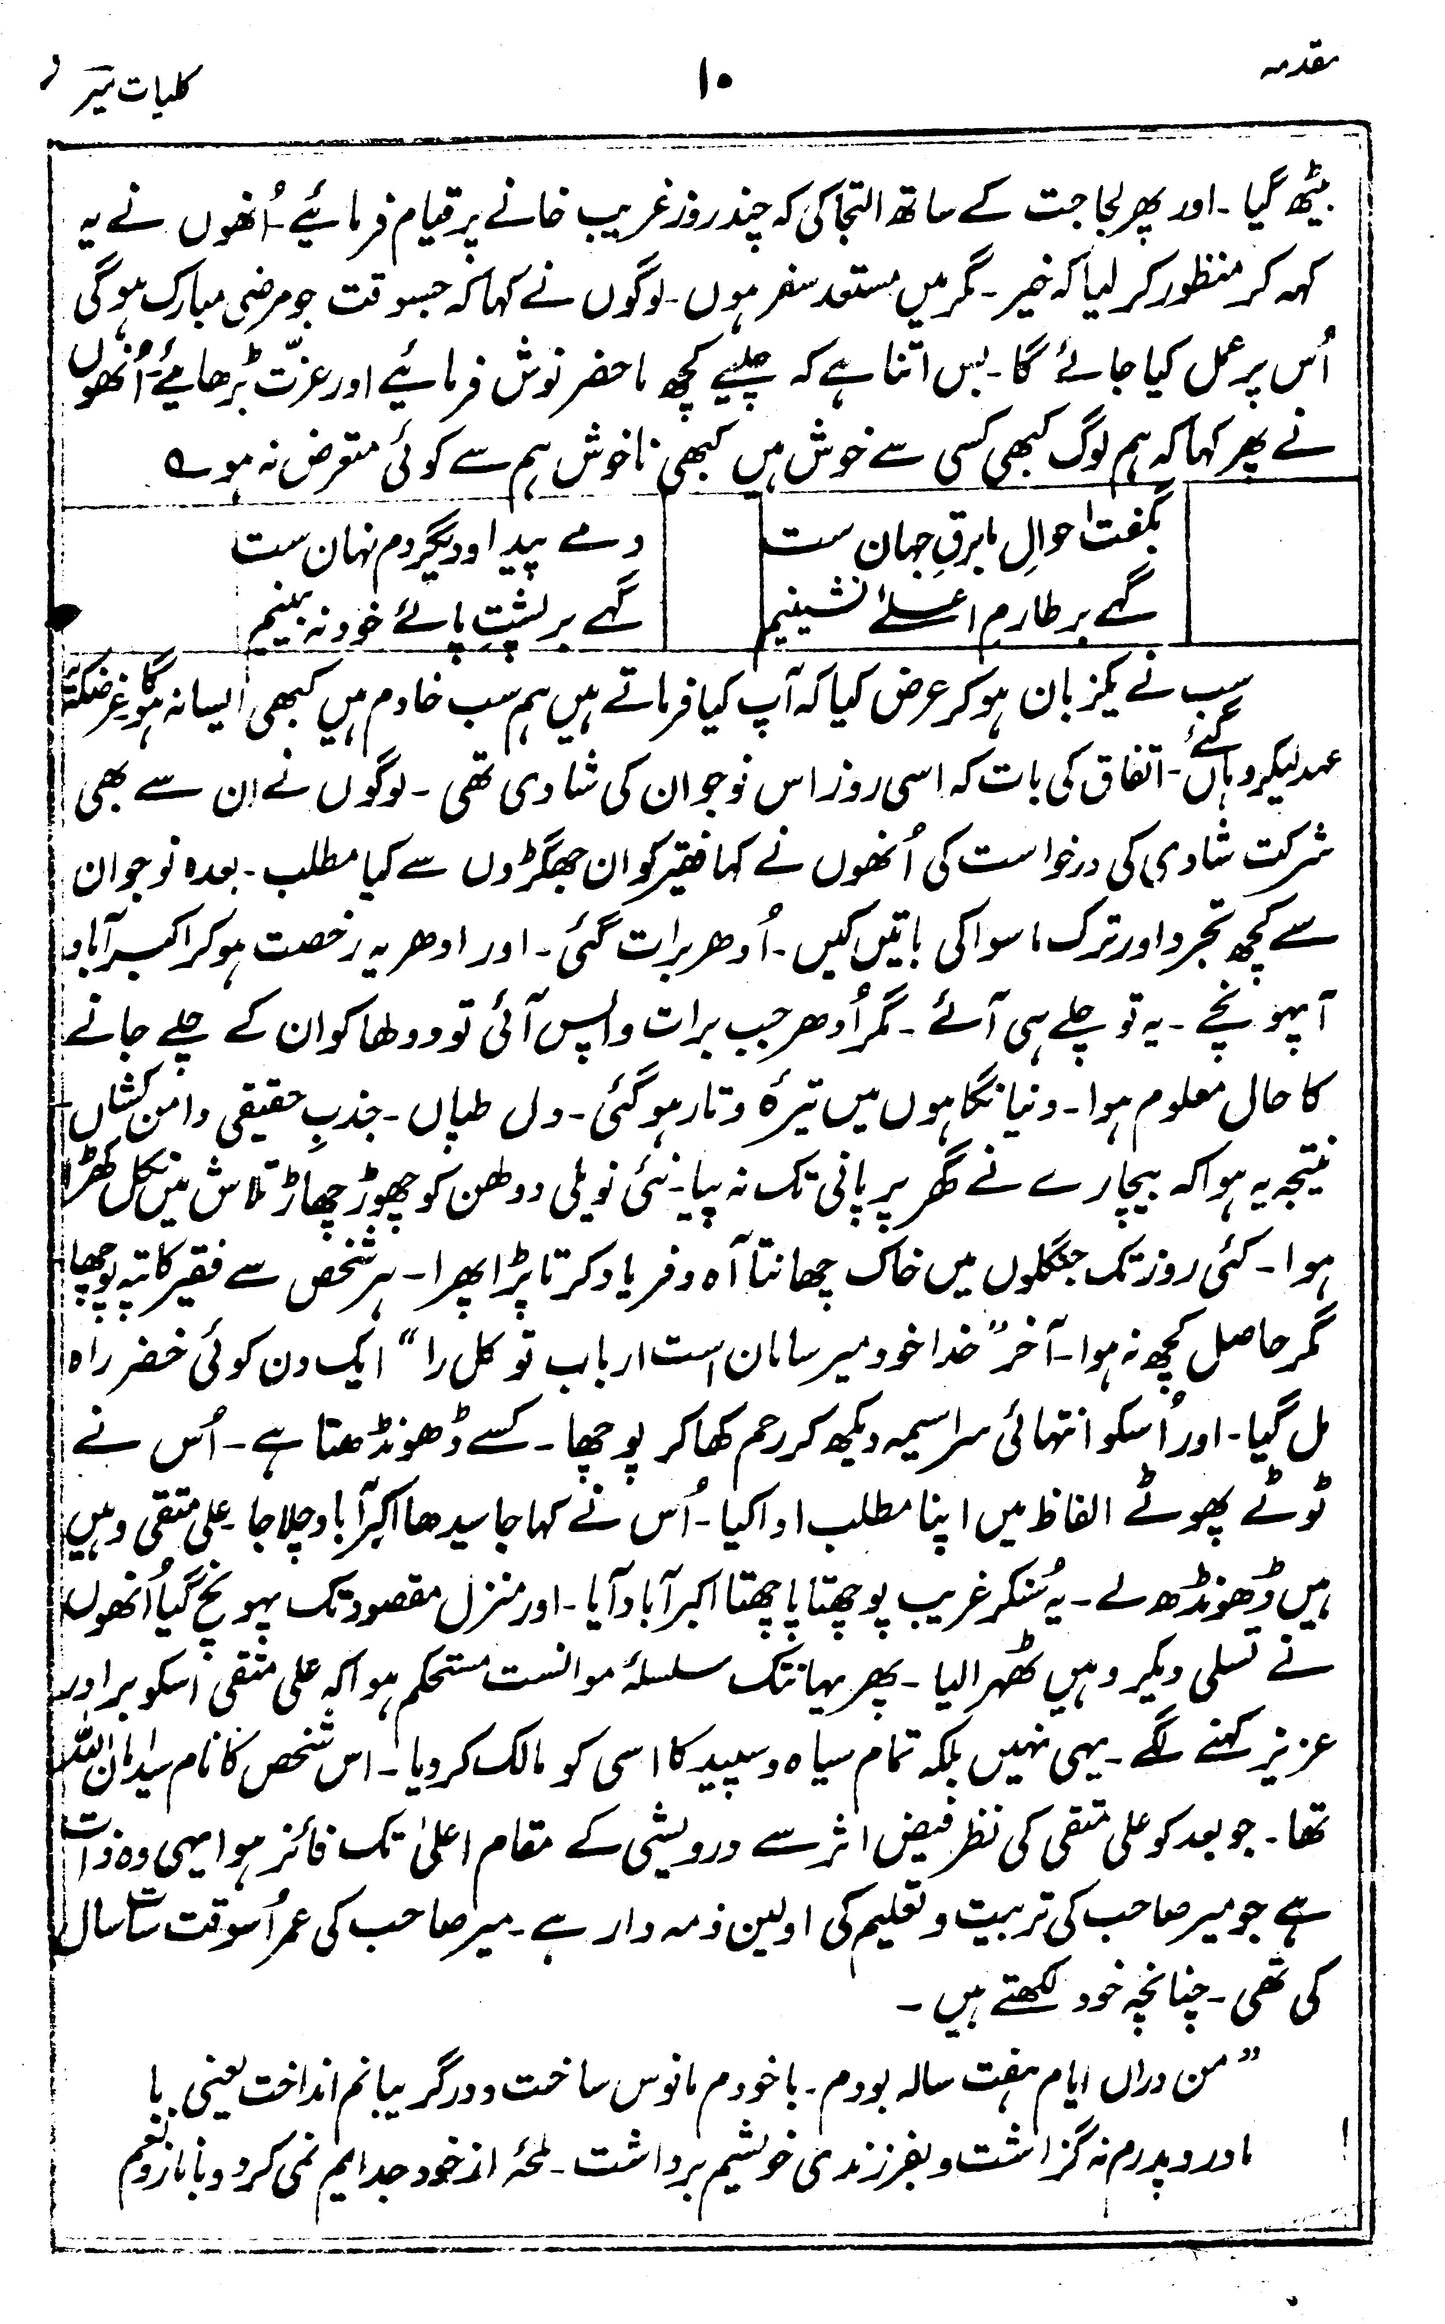 مقدمہ
۱۰
کلیات میر
بیٹھ گیا ۔ اور پھر لجاجت کے ساتھ التجا کی کہ چند روز غریب خانے پر قیام فرمائیے۔ اُنھوں نے یہ
کہہ کر منظور کر لیا کہ خیر ۔ مگر میں مستعد سفر ہوں ۔ لوگوں نے کہا کہ جسوقت جو مرضی مبارک ہوگی
اُس پر عمل کیا جائے گا ۔ بس اتنا ہے کہ چلیے کچھ ماحضر نوش فرمائیے اور عزّت بڑھایئے۔ اُنھوں
نے پھر کہا کہ ہم لوگ کبھی کسی سے خوش ہیں کبھی ناخوش ہم سے کوئی متعرض نہ ہو ؎
بگفت احوالِ ما برقِ جہان ست
دمے پیدا و دیگر دم نہان ست
گہے بر طارمِ اعلےٰ نشینیم
گہے بر پشتِ پائے خود نہ بینیم
سب نے یکزبان ہوکر عرض کیا کہ آپ کیا فرماتے ہیں ہم سب خادم ہیں کبھی ایسا نہ ہوگا غرضکہ
عہد لیکر وہاں گئے ۔ اتفاق کی بات کہ اسی روز اس نوجوان کی شادی تھی ۔ لوگوں نے ان سے بھی
شرکت شادی کی درخواست کی اُنھوں نے کہا فقیر کو ان جھگڑوں سے کیا مطلب ۔ بعدہ نوجوان
سے کچھ تجرد اور ترک ماسوا کی باتیں کیں ۔ اُدھر برات گئی ۔ اور ادھر یہ رخصت ہوکر اکبرآباد
آپہونچے ۔ یہ تو چلے ہی آئے ۔ مگر اُدھر جب برات واپس آئی تو دولھا کو ان کے چلے جانے
کا حال معلوم ہوا ۔ دنیا نگاہوں میں تیرۂ و تار ہوگئی ۔ دل طپاں ۔ جذبِ حقیقی دامن کشاں
نتیجہ یہ ہوا کہ بیچارے نے گھر پر پانی تک نہ پیا ۔ نئی نویلی دولھن کو چھوڑ چھاڑ تلاش میں نکل کھڑا
ہوا ۔ کئی روز تک جنگلوں میں خاک چھانتا آہ و فریاد کرتا پڑا پھرا ۔ ہر شخص سے فقیر کا پتہ پوچھا
مگر حاصل کچھ نہ ہوا ۔ آخر "خدا خود میر سامان است ارباب توکل را" ایک دن کوئی خضر راہ
مل گیا ۔ اور اُسکو انتہائی سراسیمہ دیکھ کر رحم کھاکر پوچھا ۔ کسے ڈھونڈھتا ہے ۔ اُس نے
ٹوٹے پھوٹے الفاظ میں اپنا مطلب ادا کیا ۔ اُس نے کہا جا سیدھا اکبرآباد چلا جا ۔ علی متقی وہیں
ہیں ڈھونڈھ لے ۔ یہ سُنکر غریب پوچھتا پاچھتا اکبرآباد آیا ۔ اور منزل مقصود تک پہونچ گیا اُنھوں
نے تسلی دیکر وہیں ٹھہرالیا ۔ پھر یہانتک سلسلۂ موانست مستحکم ہوا کہ علی متقی اسکو برادر
عزیز کہنے لگے ۔ یہی نہیں بلکہ تمام سیاہ و سپید کا اسی کو مالک کردیا ۔ اس شخص کا نام سید امان اللہ
تھا ۔ جو بعد کو علی متقی کی نظر فیض اثر سے درویشی کے مقام اعلیٰ تک فائز ہوا یہی وہ ذات
ہے جو میر صاحب کی تربیت و تعلیم کی اولین ذمہ دار ہے ۔ میر صاحب کی عمر اُسوقت سات سال
کی تھی ۔ چنانچہ خود لکھتے ہیں ۔
"من دراں ایام ہفت سالہ بودم ۔ باخودم مانوس ساخت و در گریبانم انداخت یعنی با
مادر و پدرم نہ گزاشت و بفرزندی خویشم برداشت ۔ لمحۂ از خود جدایم نمی کرد و بناز و نعم